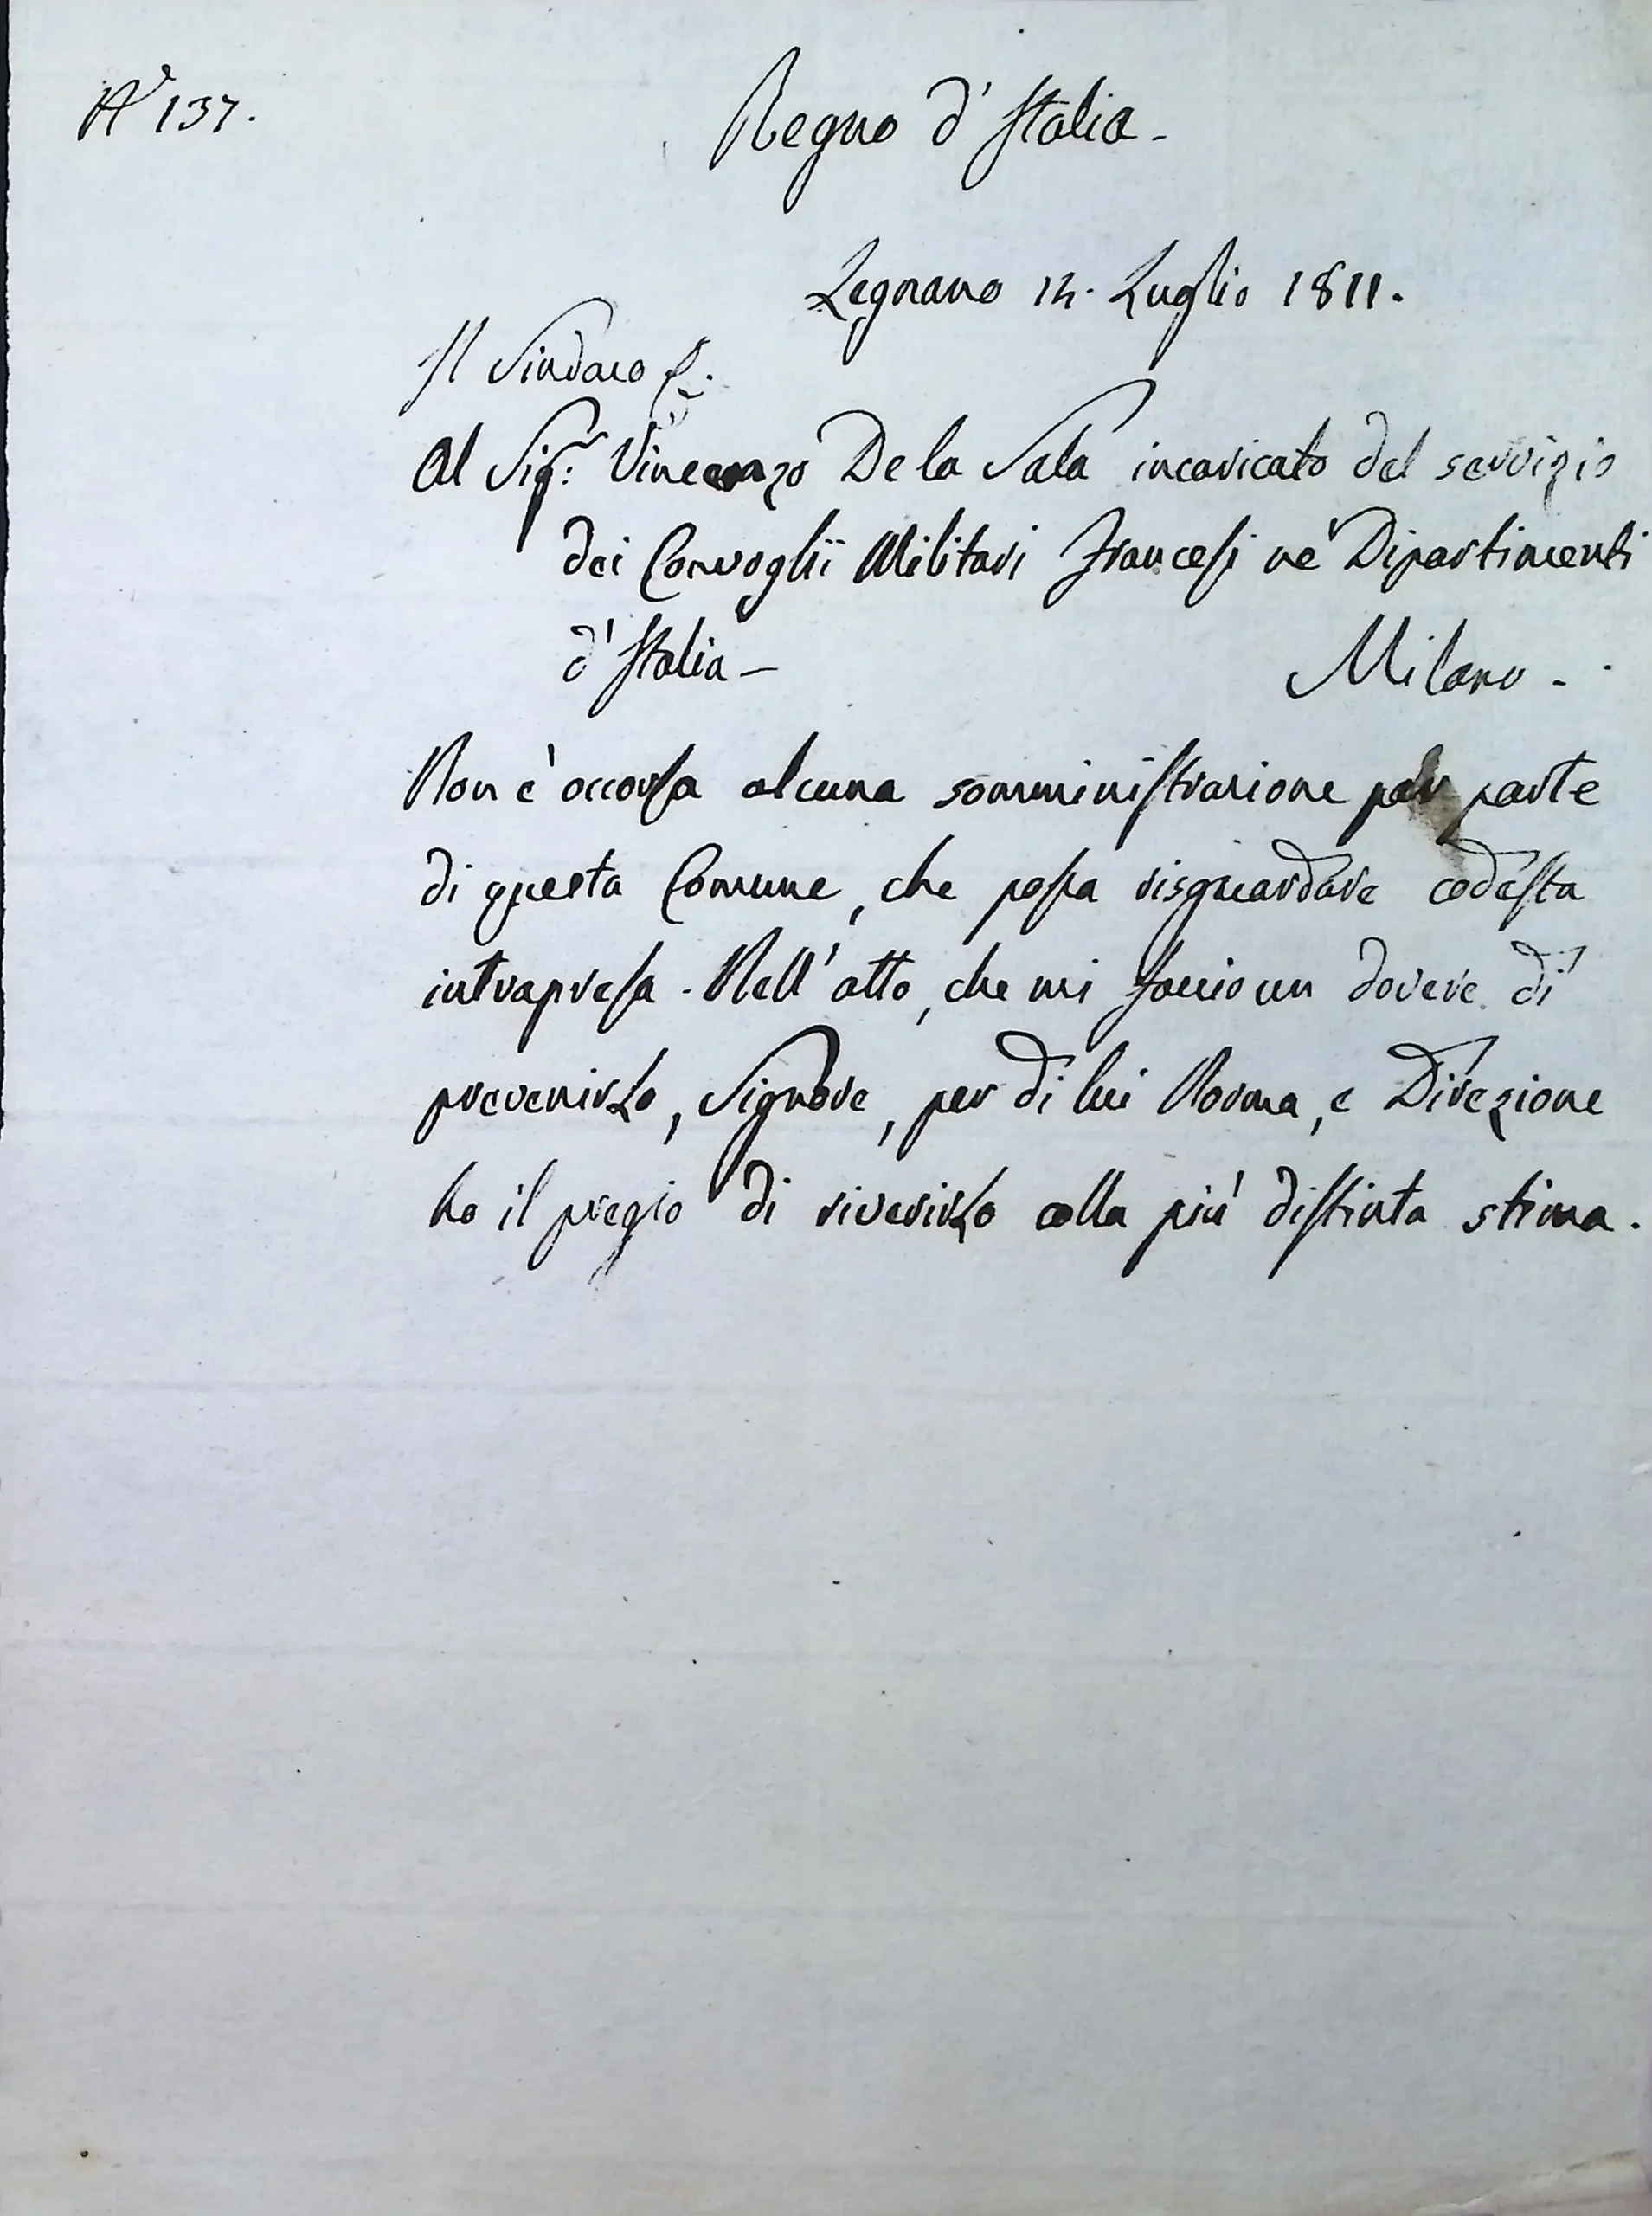 N° 137.
Regno d'Italia -
Legnano 12. Luglio 1811.
Il Sindaco
Al Sigr: Vincenzo De la Sala incaricato del servizio
dei Convoglii Militari Francesi ne' Dipartimenti
d'Italia - Milano -.
Non è occorsa alcuna somministrazione per parte
di questa Comune, che possa risguardare codesta
intrapresa. Nell'atto, che mi faccio un dovere di
prevenirLo, Signore, per di lui Norma, e Direzione
ho il pregio di riverirLo colla più distinta stima.